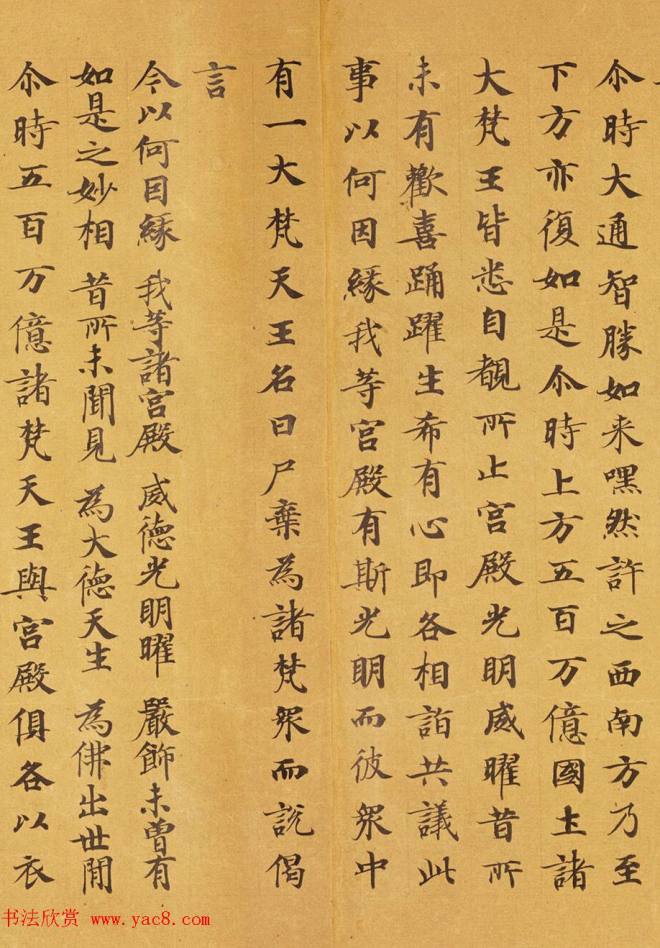 尒時大通智勝如来嘿然許之西南方乃至
下方亦復如是尒時上方五百万億國土諸
大梵王皆悉自覩所止宮殿光明威曜昔所
未有歡喜踊躍生希有心即各相詣共議此
事以何因緣我等宮殿有斯光明而彼衆中
有一大梵天王名曰尸棄為諸梵衆而說偈
言
今以何因緣 我等諸宮殿 威德光明曜 嚴飾未曾有
如是之妙相 昔所未聞見 為大德天生 為佛出世間
尒時五百万億諸梵天王與宮殿俱各以衣
书法欣赏 www.yac8.com